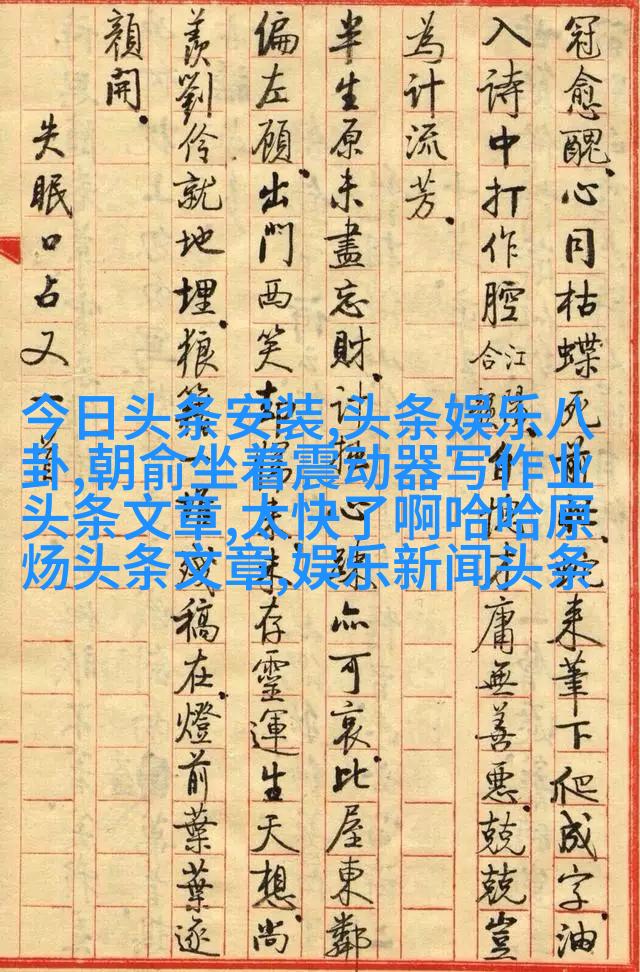 冠愈醜.心同枯蝶死前来筆下爬成字.油
入詩中打作腔合江自才庸無善惡.兢兢豈
為計流芳.
半生原未盡忘財.計心疎亦可哀.比屋東鄰
偏左顧.出門西笑未存靈運生天想.尚
羨劉伶就地埋.狼藉一残稿在.燈前葉葉逐
顏開.
失眠口占又一首
今日头条安装,头条娱乐八
卦,朝俞坐着震动器写作业
头条文章,太快了啊哈哈原
炀头条文章,娱乐新闻头条